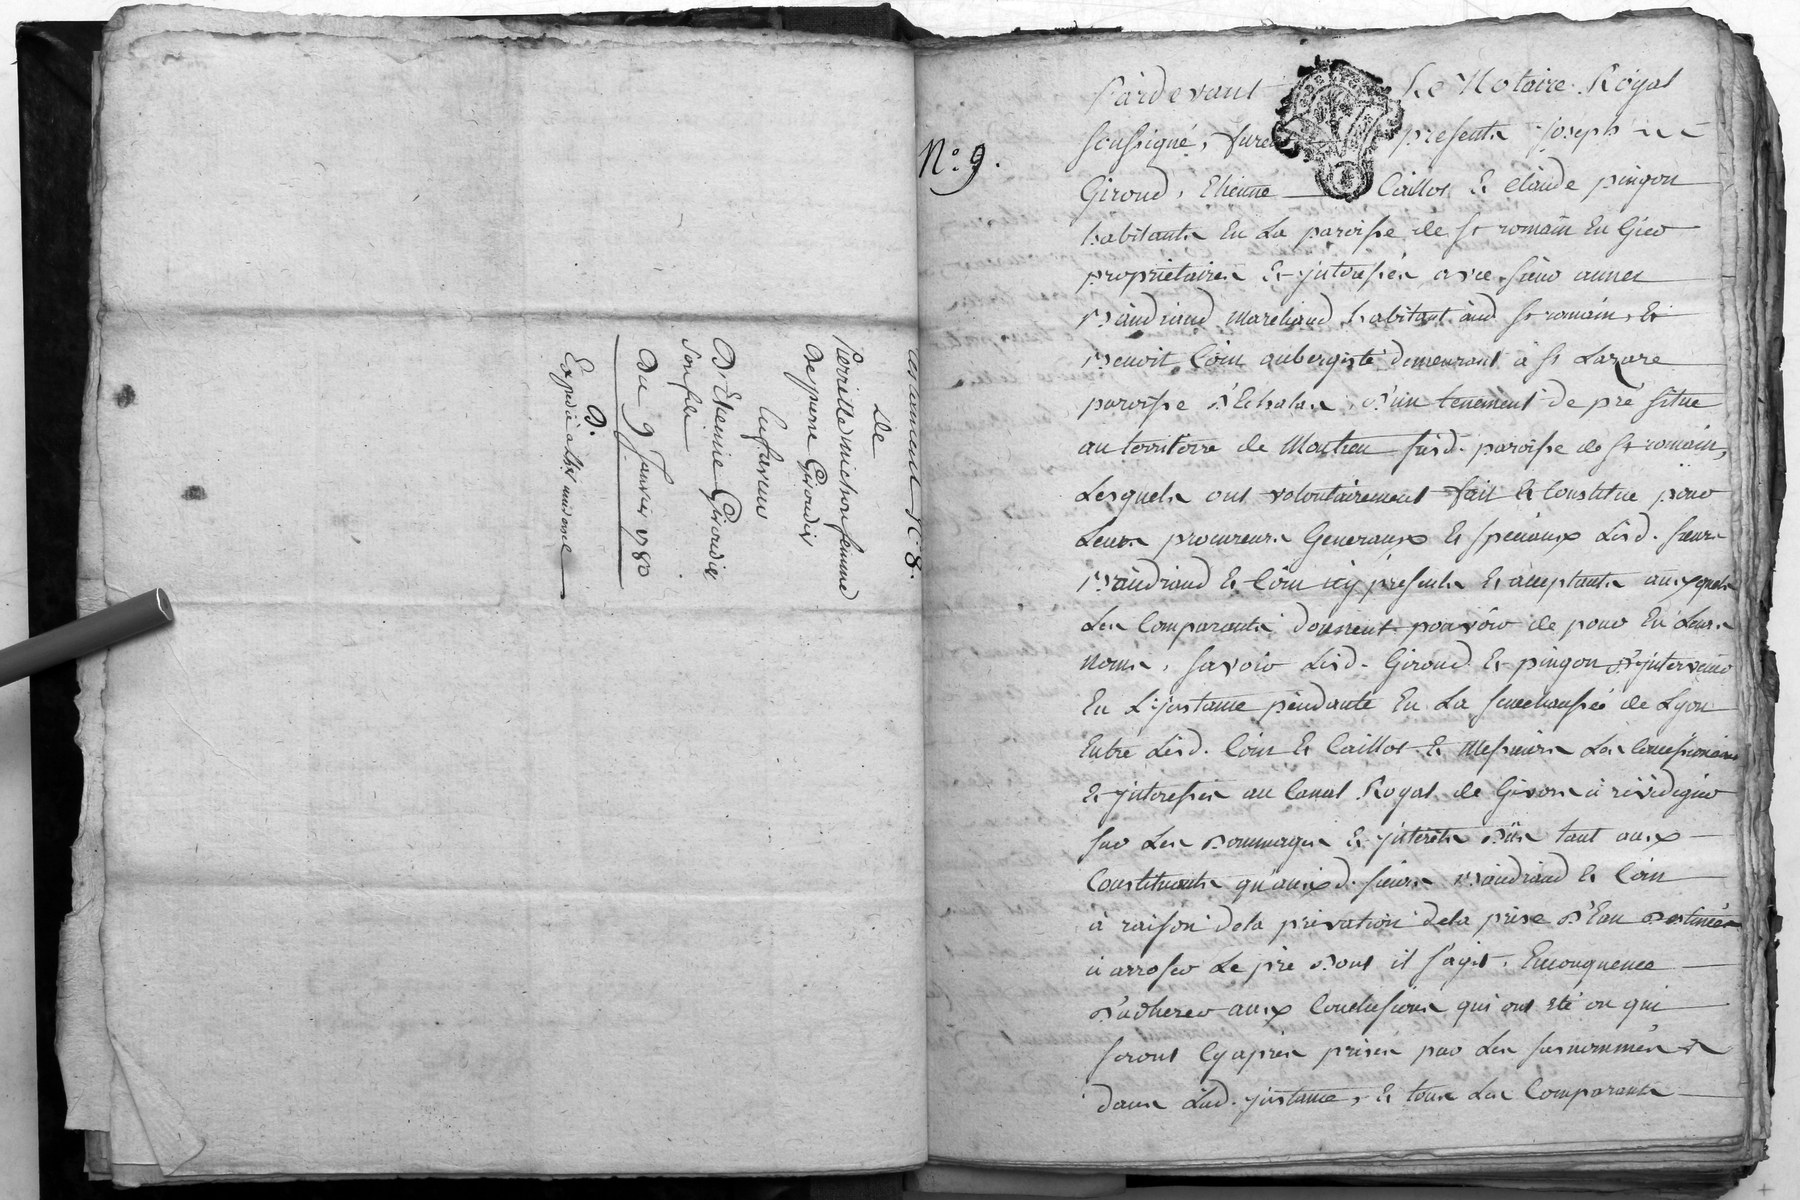 testament N.° 8.
De
Pierrette michon femme
de pierre Giroudis
En faveur
D'Etienne Giroudis
son fils
Du 9 Janvier 1780
D.
Expedié
N.° 9.
Pardevant Le Notaire Royal
soussigné, furent presents joseph
Giroud, Etienne Caillot & claude pingon
habitants En La paroisse de st romain En Gier
proprietaires & jnteressés avec sieur annet
vandriand marchand habitant aud st romain, &
Benoit Coin aubergiste demeurant à st Lazare
paroisse d'Echalas, d'un tenement de pré situé
au territoire de Montieu susd. paroisse de st romain,
Lesquels ont volontairement fait & Constitué pour
Leurs procureurs Generaux & speciaux Lesd. sieurs
vandriand & Coin icy presents & acceptants auxquels
Les Comparants donnent pouvoir de pour En Leurs
noms, savoir Lesd. Giroud & pingon d'jntervenir
En L'jnstance pendante En La senechaussée de Lyon
Entre Lesd. Coin & Caillot & Messieurs Les Concessionaires
& jnteressés au Canal Royal de Givors à
sur Les dommages & jnterêts dûs tant aux
Constituants qu'auxd. sieurs vandriand & Coin
à raison de la privation de la prise d'Eau destinée
à arroser Le pré dont il s'agit. En consequence
d'adherer aux Conclusions qui ont été ou qui
seront Cyaprès prises par Les susnommés
dans Lad. jnstance, & tous Les Comparants